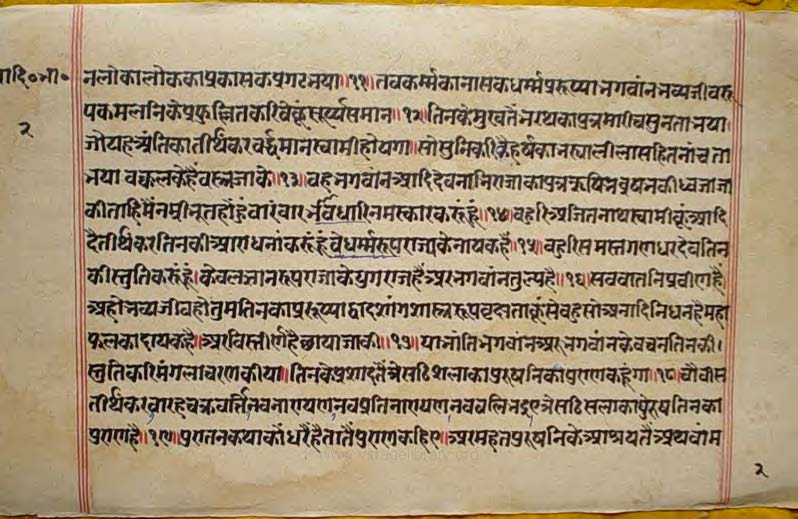 आदि॰ भा॰
२
नलोकालोककाप्रकासकप्रगटभया॥११॥तवकर्म्मकानासकधर्म्मप्ररूप्याभगवांनभव्यजीवरू
पकमलनिकेप्रफुल्लितकरिवेकूंसूर्य्यसमान॥१२॥तिनकेमुखतैंभरथकापुत्रमारीचसुनताभया।
जोयहअंतिकातीर्थकरवर्द्धमानस्वामीहोयगा।सोसुनिकरिवैहर्षकाभस्यालीलासहितनांचता
भयावक्कलकेहैंवस्त्रजाके॥१३॥वहभगवांनआदिदेवनाभिराजाकापुत्रऋषिभवृषभकीध्वजाजा
कीताहिमैंनम्रीभूतहोहूंवारंवारनमस्कारकरूंहूं॥१४॥बहुरिअजितनाथस्वामीकूंआदि
दैतीर्थकरतिनकीआराधनांकरूंहूंवेधर्म्मरूपराजाकेनायकहैं॥१५॥बहुरिसमस्तगणधरदेवतिन
कीस्तुतिकरूंहूं।केवलज्ञानरूपराजाकेयुगराजहैंअरभगवांनतुल्यहै॥१६॥सववातनिप्रवीणहैं
अहोभव्यजीवहोतुमतिनकाप्ररूप्याद्वादशांगशास्त्ररूपवृक्षताकूंसेवहुसोअनादिनिधनहैमहा
फलकादायकहै॥अरविस्तीर्णहैछायाजाकी॥१७॥याभांतिभगवांनअरभगवांनकेवचनतिनकी।
स्तुतिकरिमंगलाचरणकीया॥तिनकेप्रशादतैंत्रेसठिशलाकापुरुषनिकापुराणकहूंगा॥१८॥चौवीस
तीर्थकरवारहचक्रवर्त्तिनवनारायणनवप्रतिनारायणनववलिभद्रएत्रेसठिसलाकापुरुषतिनका
पुराणहै॥१९॥पुरातनकथाकौंधरैहैतातैंपुराणकहिए॥अरमहतपुरुषनिकेआश्रयतैंअथवांम
२